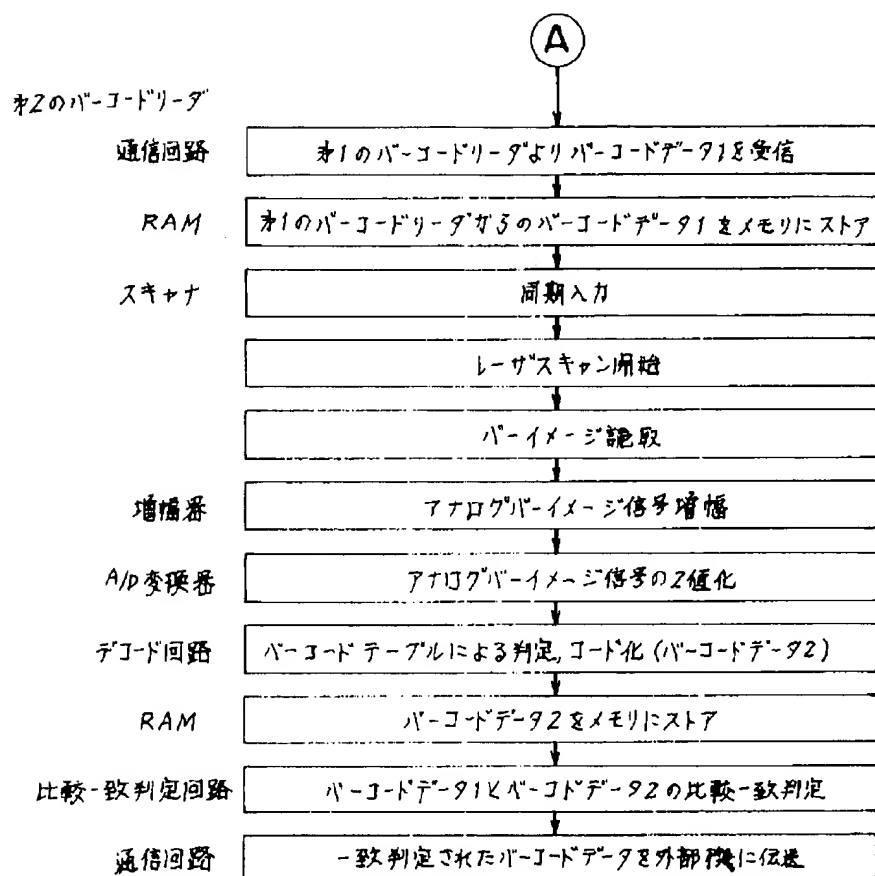 A
第2のバーコードリーダ
通信回路 第1のバーコードリーダよりバーコードデータ1を受信
RAM 第1のバーコードリーダからのバーコードデータ1をメモリにストア
スキャナ 同期入力
レーザスキャン開始
バーイメージ読取
増幅器 アナログバーイメージ信号増幅
A/D変換器 アナログバーイメージ信号の2値化
デコード回路 バーコードテーブルによる判定,コード化(バーコードデータ2)
RAM バーコードデータ2をメモリにストア
比較一致判定回路 バーコードデータ1とバーコドデータ2の比較一致判定
通信回路 一致判定されたバーコードデータを外部機に伝送